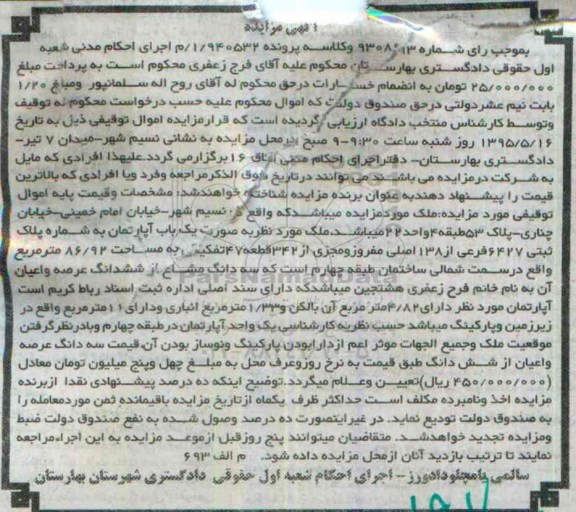 آگهی مزایده
بموجب رای شماره 9308013 وکلاسه پرونده 1/940532/م اجرای احکام مدنی شعبه
اول حقوقی دادگستری بهارستان محکوم علیه آقای فرج زعفری محکوم است به پرداخت مبلغ
25/000/000 تومان به انضمام خسارات درحق محکوم له آقای روح اله سلمانپور ومبلغ 1/20
بابت نیم عشردولتی درحق صندوق دولت که اموال محکوم علیه حسب درخواست محکوم له توقیف
وتوسط کارشناس منتخب دادگاه ارزیابی گردیده است که قرارمزایده اموال توقیفی ذیل به تاریخ
1395/5/16 روز شنبه ساعت 9:30-9 صبح درمحل مزایده به نشانی نسیم شهر-میدان 7 تیر-
دادگستری بهارستان- دفتراجرای احکام مدنی اتاق 16 برگزارمی گردد.علیهذا افرادی که مایل
به شرکت درمزایده می باشند می توانند درتاریخ فوق الذکرمراجعه وفرد ویا افرادی که بالاترین
قیمت را پیشنهاد دهندبه عنوان برنده مزایده شناخته خواهندشد: مشخصات وقیمت پایه اموال
توقیفی مورد مزایده:ملک موردمزایده میباشدکه واقع در نسیم شهر-خیابان امام خمینی-خیابان
چناری-پلاک 53طبقه4واحد22میباشد.ملک مورد نظربه صورت یک باب آپارتمان به شماره پلاک
ثبتی 6427فرعی از138 اصلی مفروزومجزی از342قطعه47تفکیکی به مساحت 86/92 مترمربع
واقع درسمت شمالی ساختمان طبقه چهارم است که سه دانگ مشاع از ششدانگ عرصه واعیان
آن به نام خانم فرح زعفری هشتجین میباشدکه دارای سند اصلی اداره ثبت اسناد رباط کریم است
آپارتمان مورد نظر دارای4/82مترمربع آن بالکن و1/33مترمربع انباری ودارای11مترمربع واقع در
زیرزمین وپارکینگ میباشد حسب نظریه کارشناسی یک واحد آپارتمان درطبقه چهارم وبادرنظرگرفتن
موقعیت ملک وجمیع الجهات موثر اعم ازدارابودن پارکینگ ونوساز بودن آن.قیمت سه دانگ عرصه
واعیان از شش دانگ طبق قیمت به نرخ روزوعرف محل به مبلغ چهل وپنج میلیون تومان معادل
(450/000/000 ریال)تعیین وعلام میگردد.توضیح اینکه ده درصد پیشنهادی نقدا ازبرنده
مزایده اخذ ونامبرده مکلف است حداکثر ظرف یکماه ازتاریخ مزایده باقیمانده ثمن موردمعامله را
به صندوق دولت تودیع نماید. در غیراینصورت ده درصد وصول شده به نفع صندوق دولت ضبط
ومزایده تجدید خواهدشد. متقاضیان میتوانند پنج روزقبل ازموعد مزایده به این اجراءمراجعه
نمایند تا ترتیب بازدید آنان ازمحل مزایده داده شود. م الف 693
سالمی دادورز - اجرای احکام شعبه اول حقوقی دادگستری شهرستان بهارستان